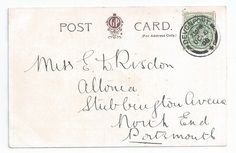 POST CARD.
(For Address Only.)
Miss E. Risdon
Altonia
Stubbington Avenue
North End
Portsmouth